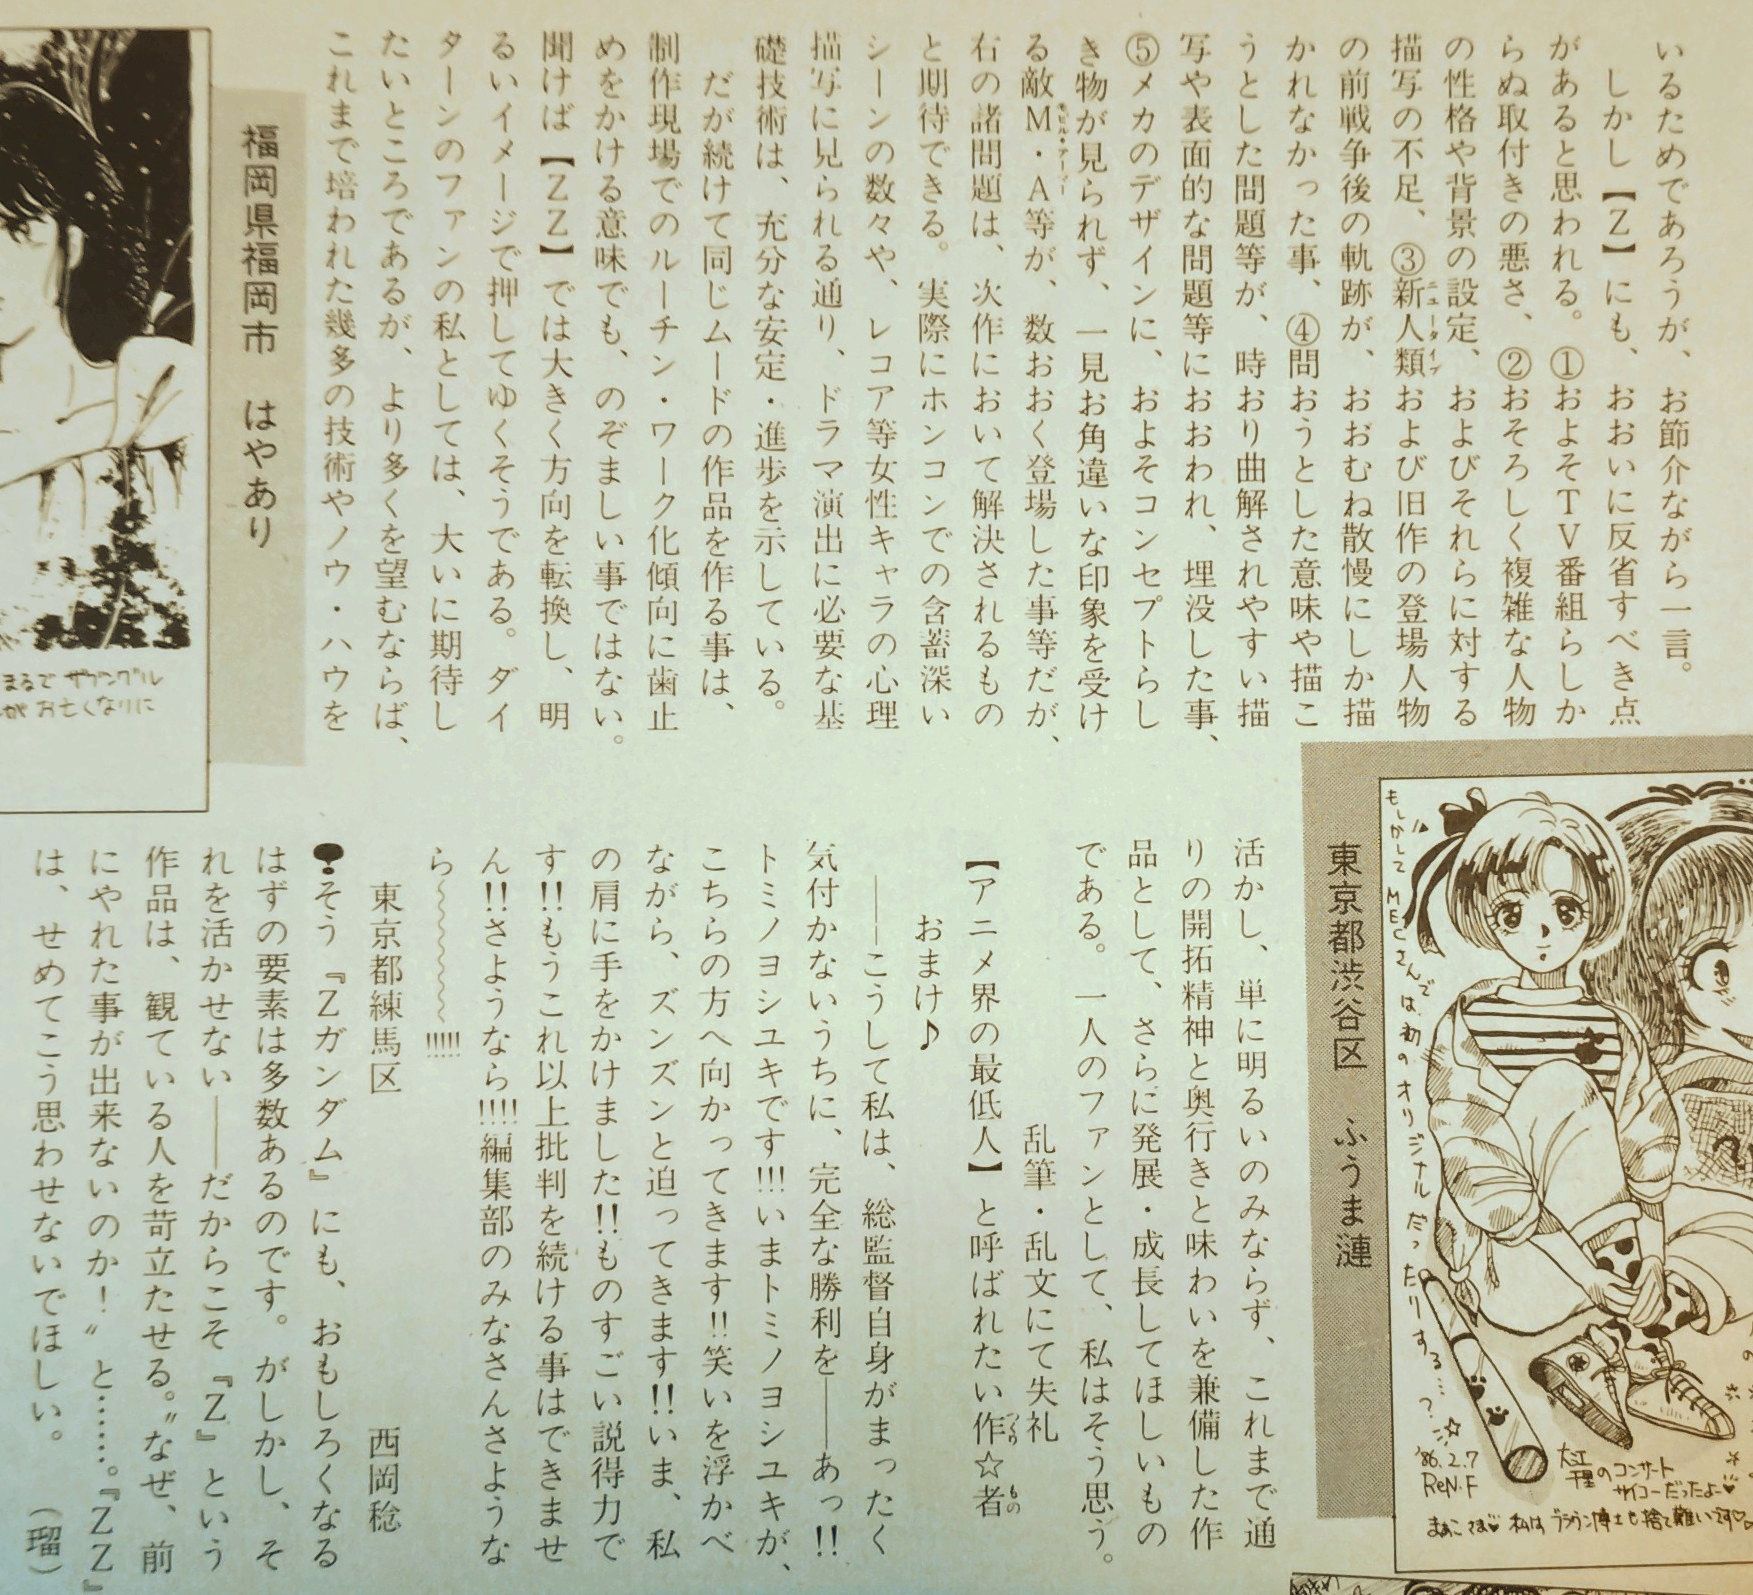 いるためであろうが、お節介ながら一言。
しかし【Z】にも、おおいに反省すべき点
があると思われる。①およそTV番組らしか
らぬ取付きの悪さ、②おそろしく複雑な人物
の性格や背景の設定、およびそれらに対する
描写の不足、③新人類および旧作の登場人物
ニュータイプ
の前戦争後の軌跡が、おおむね散慢にしか描
かれなかった事、④問おうとした意味や描こ
うとした問題等が、時おり曲解されやすい描
写や表面的な問題等におおわれ、埋没した事、
⑤メカのデザインに、およそコンセプトらし
き物が見られず、一見お角違いな印象を受け
る敵M・A等が、数おおく登場した事等だが、
モビル・アーマー
右の諸問題は、次作において解決されるもの
と期待できる。実際にホンコンでの含蓄深い
シーンの数々や、レコア等女性キャラの心理
描写に見られる通り、ドラマ演出に必要な基
礎技術は、充分な安定・進歩を示している。
だが続けて同じムードの作品を作る事は、
制作現場でのルーチン・ワーク化傾向に歯止
めをかける意味でも、のぞましい事ではない。
聞けば【ZZ】では大きく方向を転換し、明
るいイメージで押してゆくそうである。ダイ
ターンのファンの私としては、大いに期待し
たいところであるが、より多くを望むならば、
これまで培われた幾多の技術やノウ・ハウを
活かし、単に明るいのみならず、これまで通
りの開拓精神と奥行きと味わいを兼備した作
品として、さらに発展・成長してほしいもの
である。一人のファンとして、私はそう思う。
乱筆・乱文にて失礼
【アニメ界の最低人】と呼ばれたい作☆者
つくり もの
おまけ♪
――こうして私は、総監督自身がまったく
気付かないうちに、完全な勝利を――あっ!!
トミノヨシユキです!!!いまトミノヨシユキが、
こちらの方へ向かってきます!!笑いを浮かべ
ながら、ズンズンと迫ってきます!!いま、私
の肩に手をかけました!!ものすごい説得力で
す!!もうこれ以上批判を続ける事はできませ
ん!!さようなら!!!!編集部のみなさんさような
ら〜〜〜〜〜!!!!!
東京都練馬区 西岡稔
そう『Zガンダム』にも、おもしろくなる
はずの要素は多数あるのです。がしかし、そ
れを活かせない――だからこそ『Z』という
作品は、観ている人を苛立たせる。〝なぜ、前
にやれた事が出来ないのか!〟と……。『ZZ』
は、せめてこう思わせないでほしい。(瑠)
福岡県福岡市 はやあり
まるで ザブングル
が お亡くなりに
東京都渋谷区 ふうま漣
もしかして MECさんでは初のオリジナルだったりする…?
'86.2.7
ReN.F
大江千里のコンサート
サイコーだったよー♡
まぁこさま♡ 私は ブラウン博士も捨て難いです♡